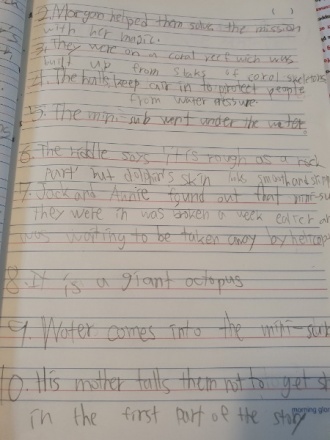 ( )
2. Morgan helped them solve the mission
with her magic.
3. They were on a coral reef wich was
built up from of coral skeletons
4. The keep in to protect people
from water
5. The mini-sub went under the water
6. The riddle says it is rough as a rock
but dolphin's skin smooth and
7. Jack and Annie found out that mini-su
They were in was broken a week ealier an
was waiting to be taken away by helicop
8. It is a giant octopus
9. Water comes into the mini-sub
10. His mother talls them not to get
in the first part of the story
morning glor